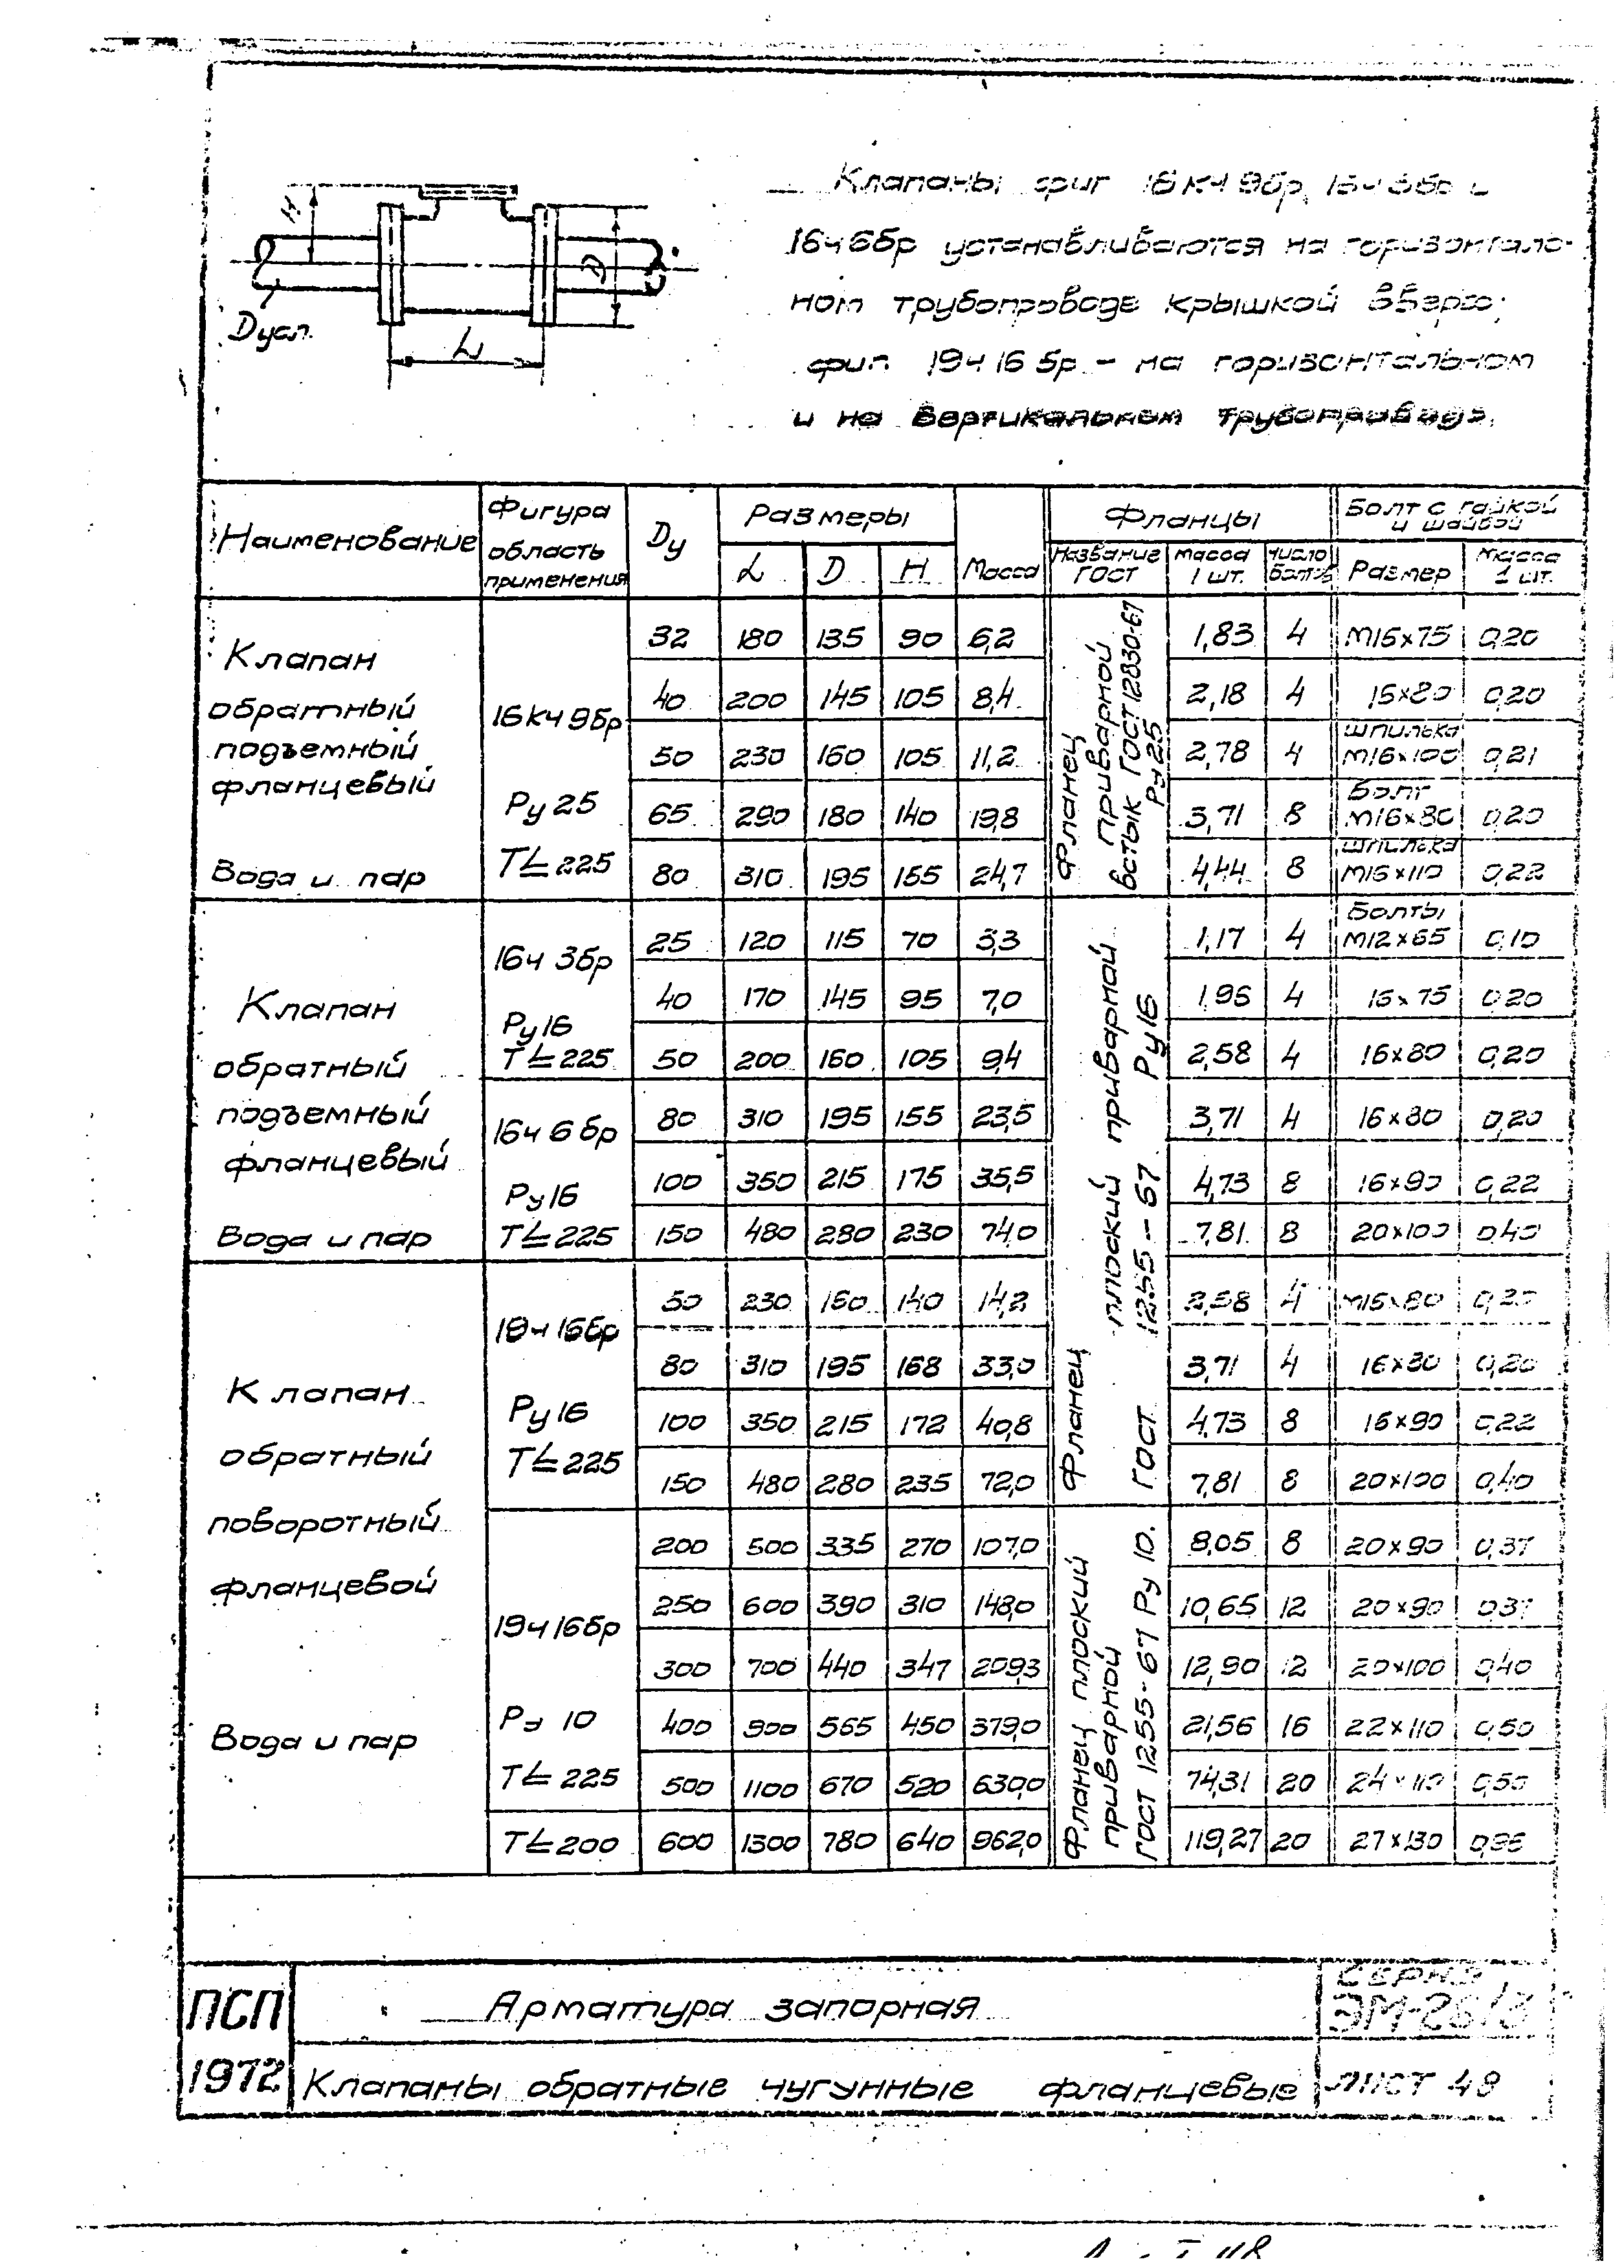 Клапаны фиг 16кч 9бр, 16ч 3бр и
16ч 6бр устанавливаются на горизонталь-
ном трубопроводе крышкой вверх;
фиг. 19ч 16 бр - на горизонтальном
и на вертикальном трубопроводе.
H
D
Dусл.
L
Наименование | Фигура область применения | Dу | Размеры | Масса | Фланцы | Болт с гайкой и шайбой
L | D | H | Название ГОСТ | масса 1 шт. | число болтов | Размер | масса 1 шт.
Клапан
обратный
подъемный
фланцевый
Вода и пар
16кч 9бр
Ру 25
Т ≤ 225
Фланец приварной
встык ГОСТ 12830-67
Ру 25
32 | 180 | 135 | 90 | 6,2 | 1,83 | 4 | М16×75 | 0,20
40 | 200 | 145 | 105 | 8,4 | 2,18 | 4 | 16×80 | 0,20
50 | 230 | 160 | 105 | 11,2 | 2,78 | 4 | шпилька М16×100 | 0,21
65 | 290 | 180 | 140 | 19,8 | 3,71 | 8 | Болт М16×80 | 0,20
80 | 310 | 195 | 155 | 24,7 | 4,44 | 8 | шпилька М16×110 | 0,22
Клапан
обратный
подъемный
фланцевый
Вода и пар
16ч 3бр
Ру 16
Т ≤ 225
16ч 6бр
Ру 16
Т ≤ 225
Фланец плоский приварной
ГОСТ 1255-67 Ру 16
25 | 120 | 115 | 70 | 3,3 | 1,17 | 4 | Болты М12×65 | 0,10
40 | 170 | 145 | 95 | 7,0 | 1,96 | 4 | 16×75 | 0,20
50 | 200 | 160 | 105 | 9,4 | 2,58 | 4 | 16×80 | 0,20
80 | 310 | 195 | 155 | 23,5 | 3,71 | 4 | 16×80 | 0,20
100 | 350 | 215 | 175 | 35,5 | 4,73 | 8 | 16×90 | 0,22
150 | 480 | 280 | 230 | 74,0 | 7,81 | 8 | 20×100 | 0,40
Клапан
обратный
поворотный
фланцевой
Вода и пар
19ч 16бр
Ру 16
Т ≤ 225
50 | 230 | 160 | 140 | 14,2 | 2,58 | 4 | М16×80 | 0,20
80 | 310 | 195 | 168 | 33,0 | 3,71 | 4 | 16×80 | 0,20
100 | 350 | 215 | 172 | 40,8 | 4,73 | 8 | 16×90 | 0,22
150 | 480 | 280 | 235 | 72,0 | 7,81 | 8 | 20×100 | 0,40
19ч 16бр
Ру 10
Т ≤ 225
Т ≤ 200
Фланец плоский
приварной
ГОСТ 1255-67 Ру 10.
200 | 500 | 335 | 270 | 107,0 | 8,05 | 8 | 20×90 | 0,37
250 | 600 | 390 | 310 | 148,0 | 10,65 | 12 | 20×90 | 0,37
300 | 700 | 440 | 347 | 209,3 | 12,90 | 12 | 20×100 | 0,40
400 | 900 | 565 | 450 | 379,0 | 21,56 | 16 | 22×110 | 0,50
500 | 1100 | 670 | 520 | 630,0 | 74,31 | 20 | 24×110 | 0,50
600 | 1300 | 780 | 640 | 962,0 | 119,27 | 20 | 27×130 | 0,96
ПСП
1972
Арматура запорная
Клапаны обратные чугунные фланцевые
СЕРИЯ
ЭМ-26/3
ЛИСТ 48